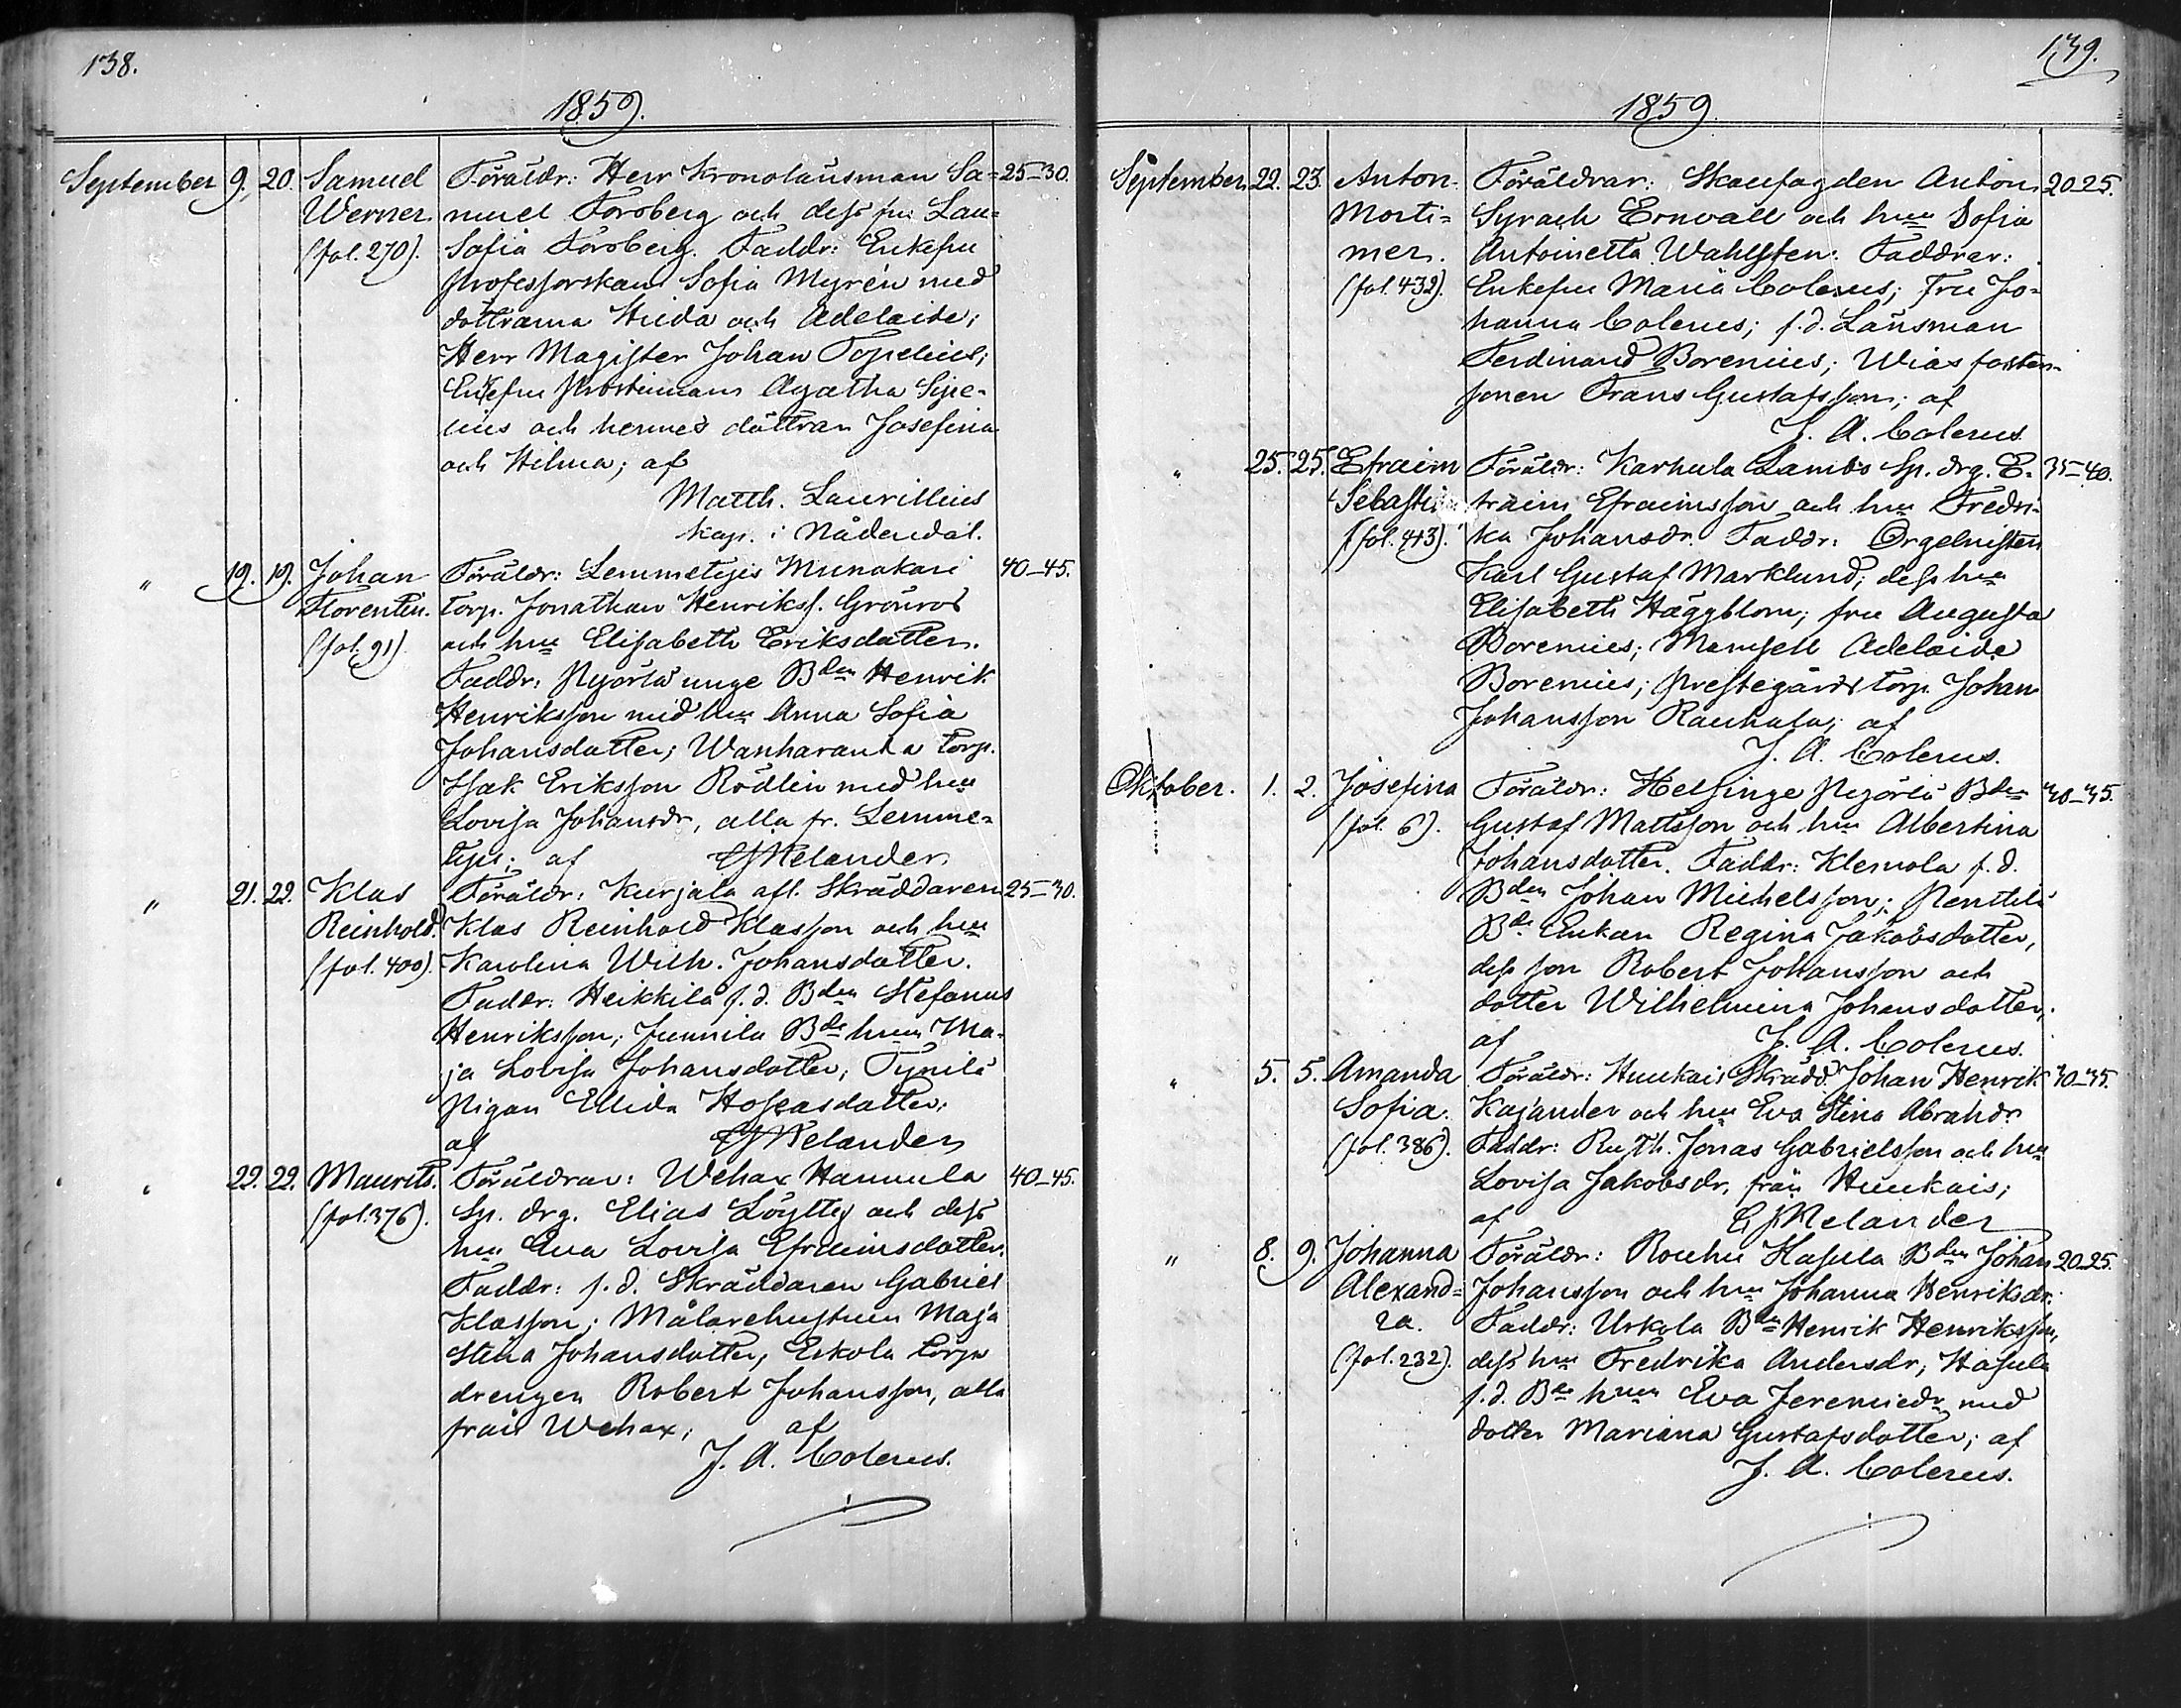 138.
1859.
September 9. 20. Samuel Föräldr: Herr Kronolänsman Sa= 25-30.
Werner. muel Forsberg och dess fru Lau=
(fol. 270). Sofia Forsberg. Faddr: Enkefru
Professorskan Sofia Myrén med
döttrarna Hilda och Adelaide;
Herr Magister Johan Topelius;
Enkefru Prostinnan Agatha Sipe-
lius och hennes döttrar Josefina
och Hilma; af
Matth. Laurillius
kap. i Nådendal.
" 19. 19. Johan Föräldr: Lemmetyis Munakari 40-45.
Florentin. torp. Jonathan Henrikss. Grönros
(fol. 91). och hru Elisabeth Eriksdotter.
Faddr: Pyörlä unge Bden Henrik
Henriksson med hru Anna Sofia
Johansdotter; Wanharanta torp.
Isak Eriksson Rödlin med hru
Lovisa Johansdr, alla fr. Lemme-
tyis; af Melander
" 21. 22. Klas Föräldr: Kurjala afl. Skräddaren 25-30.
Reinhold. Klas Reinhold Klasson och hru
(fol. 400). Karolina Wilh. Johansdotter.
Faddr: Heikkilä f.d. Bden Stefanus
Henriksson; Junnila Bde hrun Ma-
ja Lovisa Johansdotter; Tynilä
Pigan Ellida Hoseasdotter;
af Melander
" 22. 22. Maurits. Föräldrar: Wehax Hannula 40-45.
(fol. 376). Sp. drg. Elias Löytty och dess
hru Eva Lovisa Efraimsdotter.
Faddr: f.d. Skräddaren Gabriel
Klasson; Målarehustrun Maja
Stina Johansdotter, Eskola torp
drengen Robert Johansson, alla
från Wehax; af
J. A. Colerus.
139.
1859.
September 22. 23. Anton Föräldrar: Skaufogden Anton 20-25.
Morti= Syrach Ernvall och hru Sofia
mer. Antoinetta Wahlsten. Faddrar:
(fol. 432). Enkefru Maria Colerus; Fru Jo-
hanna Colerus; f.d. Länsman
Ferdinand Borenius; Wias foster-
sonen Frans Gustafsson; af
J. A. Colerus
" 25. 25. Efraim Föräldr: Karhula Lambo Sp. drg. E- 35-40.
Sebasti fraim Efraimsson och hru Fredri-
(fol. 413). ka Johansdr. Faddr: Orgelnisten
Karl Gustaf Marklund; dess hru
Elisabeth Häggblom; fru Augusta
Borenius; Mamsell Adelaide
Borenius; prestegårds torp. Johan
Johansson Rauhala; af
J. A. Colerus.
Oktober. 1. 2. Josefina Föräldr: Helsinge Pyörlä Bden 30-35.
(fol. 6). Gustaf Mattsson och hru Albertina
Johansdotter. Faddr: Klemola f.d.
Bden Johan Michelsson; Penttilä
Bde Enkan Regina Jakobsdotter,
dess son Robert Johansson och
dotter Wilhelmina Johansdotter;
af J. A. Colerus.
" 5. 5. Amanda Föräldr: Huukais Skrädd. Johan Henrik 30-35.
Sofia. Kajander och hru Eva Stina Abrahdr.
(fol. 386). Faddr: Ru Th. Jonas Gabrielsson och hru
Lovisa Jakobsdr, från Huukais;
af Melander
" 8. 9. Johanna Föräldr: Rouhu Hasula Bden Johan 20-25.
Alexand= Johansson och hru Johanna Henriksdr.
ra. Faddr: Uskola Bden Henrik Henriksson,
(fol. 232). dess hru Fredrika Andersdr, Hasula
f.d. Bde hrun Eva Jeremiedr med
dotter Mariana Gustafsdotter; af
J. A. Colerus.